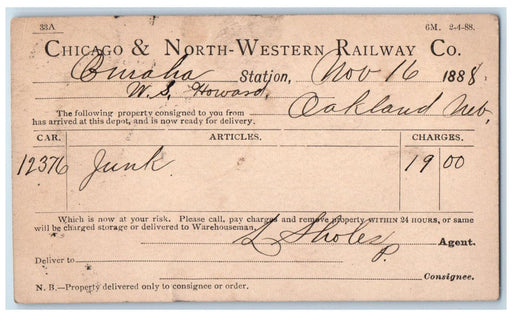 33A 6M. 2-4-88.
CHICAGO & NORTH-WESTERN RAILWAY CO.
Omaha Station, Nov 16 1888.
W. S. Howard, Oakland Neb,
The following property consigned to you from
has arrived at this depot, and is now ready for delivery.
CAR. ARTICLES. CHARGES.
12376 Junk 19 00
Which is now at your risk. Please call, pay charges and remove property WITHIN 24 HOURS, or same
will be charged storage or delivered to Warehouseman.
L Sholes Agent.
P.
Deliver to
Consignee.
N. B.—Property delivered only to consignee or order.